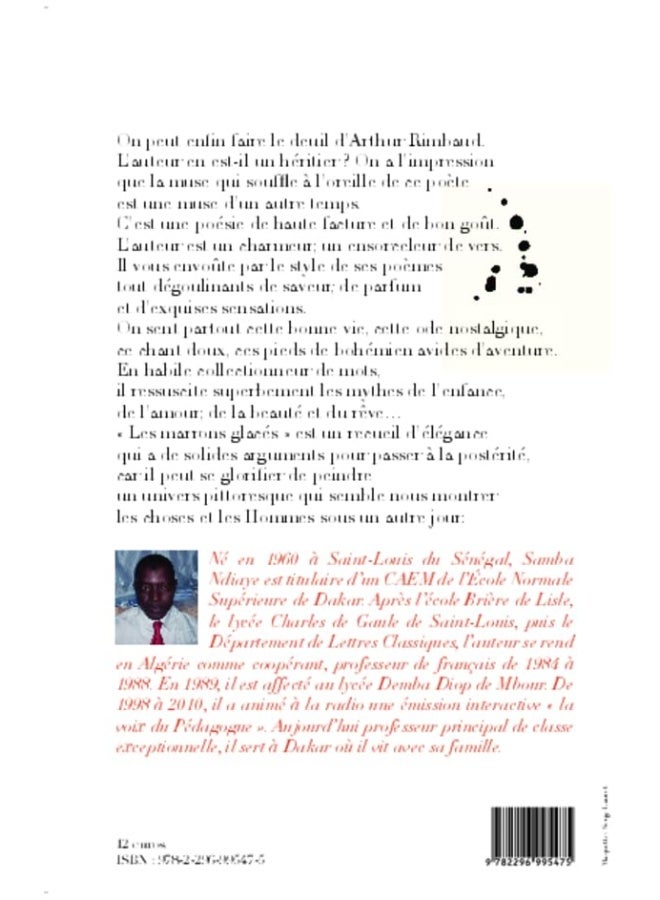 On peut enfin faire le deuil d'Arthur Rimbaud.
L'auteur en est-il un héritier ? On a l'impression
que la muse qui souffle à l'oreille de ce poète
est une muse d'un autre temps.
C'est une poésie de haute facture et de bon goût.
L'auteur est un charmeur; un ensorceleur de vers.
Il vous envoûte par le style de ses poèmes
tout dégoulinants de saveur, de parfum
et d'exquises sensations.
On sent partout cette bonne vie, cette ode nostalgique,
ce chant doux, ces pieds de bohémien avides d'aventure.
En habile collectionneur de mots,
il ressuscite superbement les mythes de l'enfance,
de l'amour, de la beauté et du rêve…
« Les marrons glacés » est un recueil d'élégance
qui a de solides arguments pour passer à la postérité,
car il peut se glorifier de peindre
un univers pittoresque qui semble nous montrer
les choses et les Hommes sous un autre jour.
Né en 1960 à Saint-Louis du Sénégal, Samba
Ndiaye est titulaire d'un CAEM de l'École Normale
Supérieure de Dakar. Après l'école Brière de Lisle,
le lycée Charles de Gaule de Saint-Louis, puis le
Département de Lettres Classiques, l'auteur se rend
en Algérie comme coopérant, professeur de français de 1984 à
1988. En 1989, il est affecté au lycée Demba Diop de Mbour. De
1998 à 2010, il a animé à la radio une émission interactive « la
voix du Pédagogue ». Aujourd'hui professeur principal de classe
exceptionnelle, il sert à Dakar où il vit avec sa famille.
12 euros
ISBN : 978-2-296-99547-5
9 782296 995475